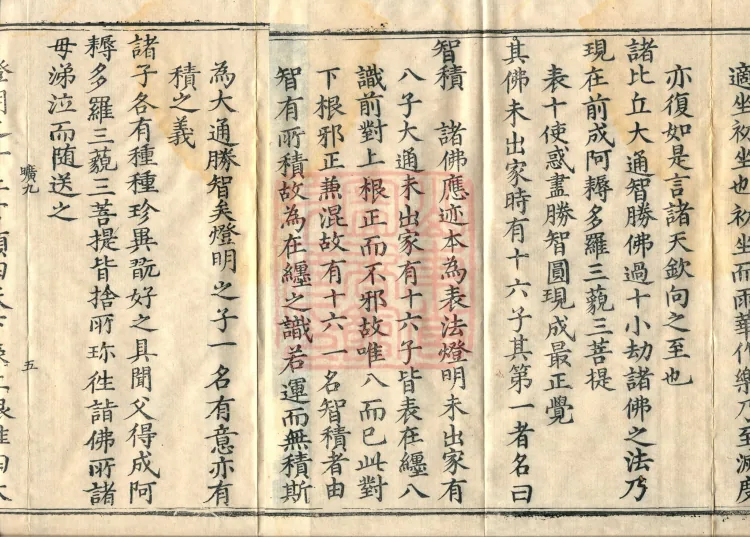 適坐初坐也初坐而雨華作樂乃至滅度
亦復如是言諸天欽向之至也
諸比丘大通智勝佛過十小劫諸佛之法乃
現在前成阿耨多羅三藐三菩提
表十使惑盡勝智圓現成最正覺
其佛未出家時有十六子其第一者名曰
智積 諸佛應迹本為表法燈明未出家有
八子大通未出家有十六子皆表在纏八
識前對上根正而不邪故唯八而已此對
下根邪正兼混故有十六一名智積者由
智有所積故為在纏之識若運而無積斯
為大通勝智矣燈明之子一名有意亦有
積之義
諸子各有種種珍異翫好之具聞父得成阿
耨多羅三藐三菩提皆捨所珍往詣佛所諸
母涕泣而隨送之
曠九 五